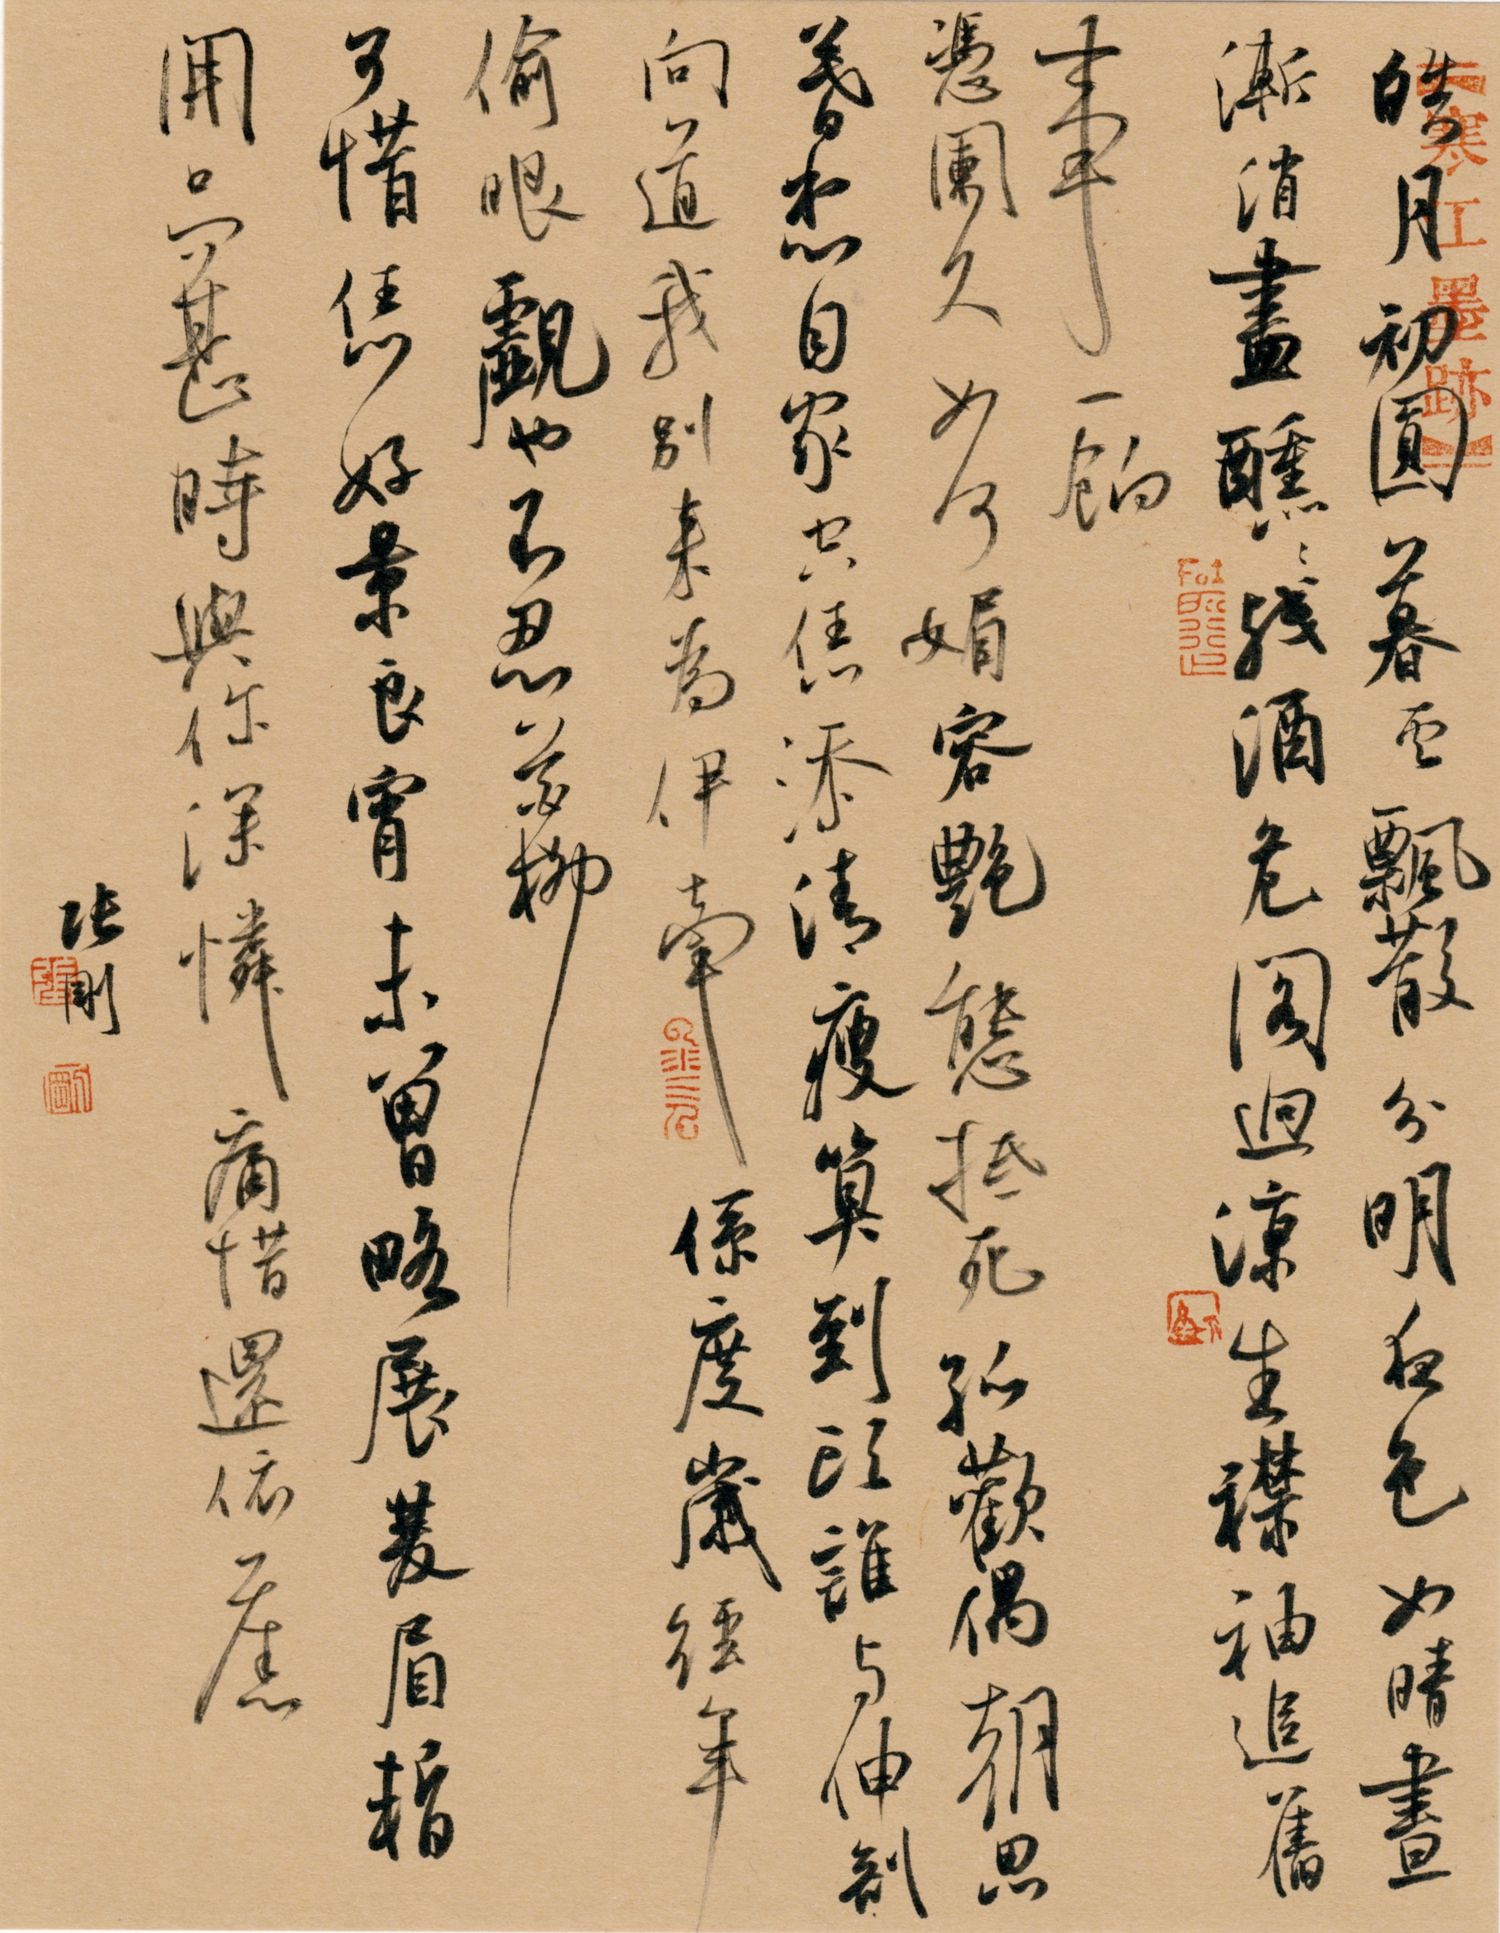 寒江墨跡
皓月初圓暮雲飄散分明夜色如晴晝
漸消盡醺々殘酒危閣迥涼生襟袖追舊
事一餉
憑闌久如何媚容艷態抵死孤歡偶朝思
暮想自家空恁添清瘦算到頭誰与伸剖
向道我別来為伊牽係度歲經年
偷眼覷也不忍花柳
可惜恁好景良宵未曾略展雙眉暫
開口問甚時與你深憐痛惜還依舊
張剛